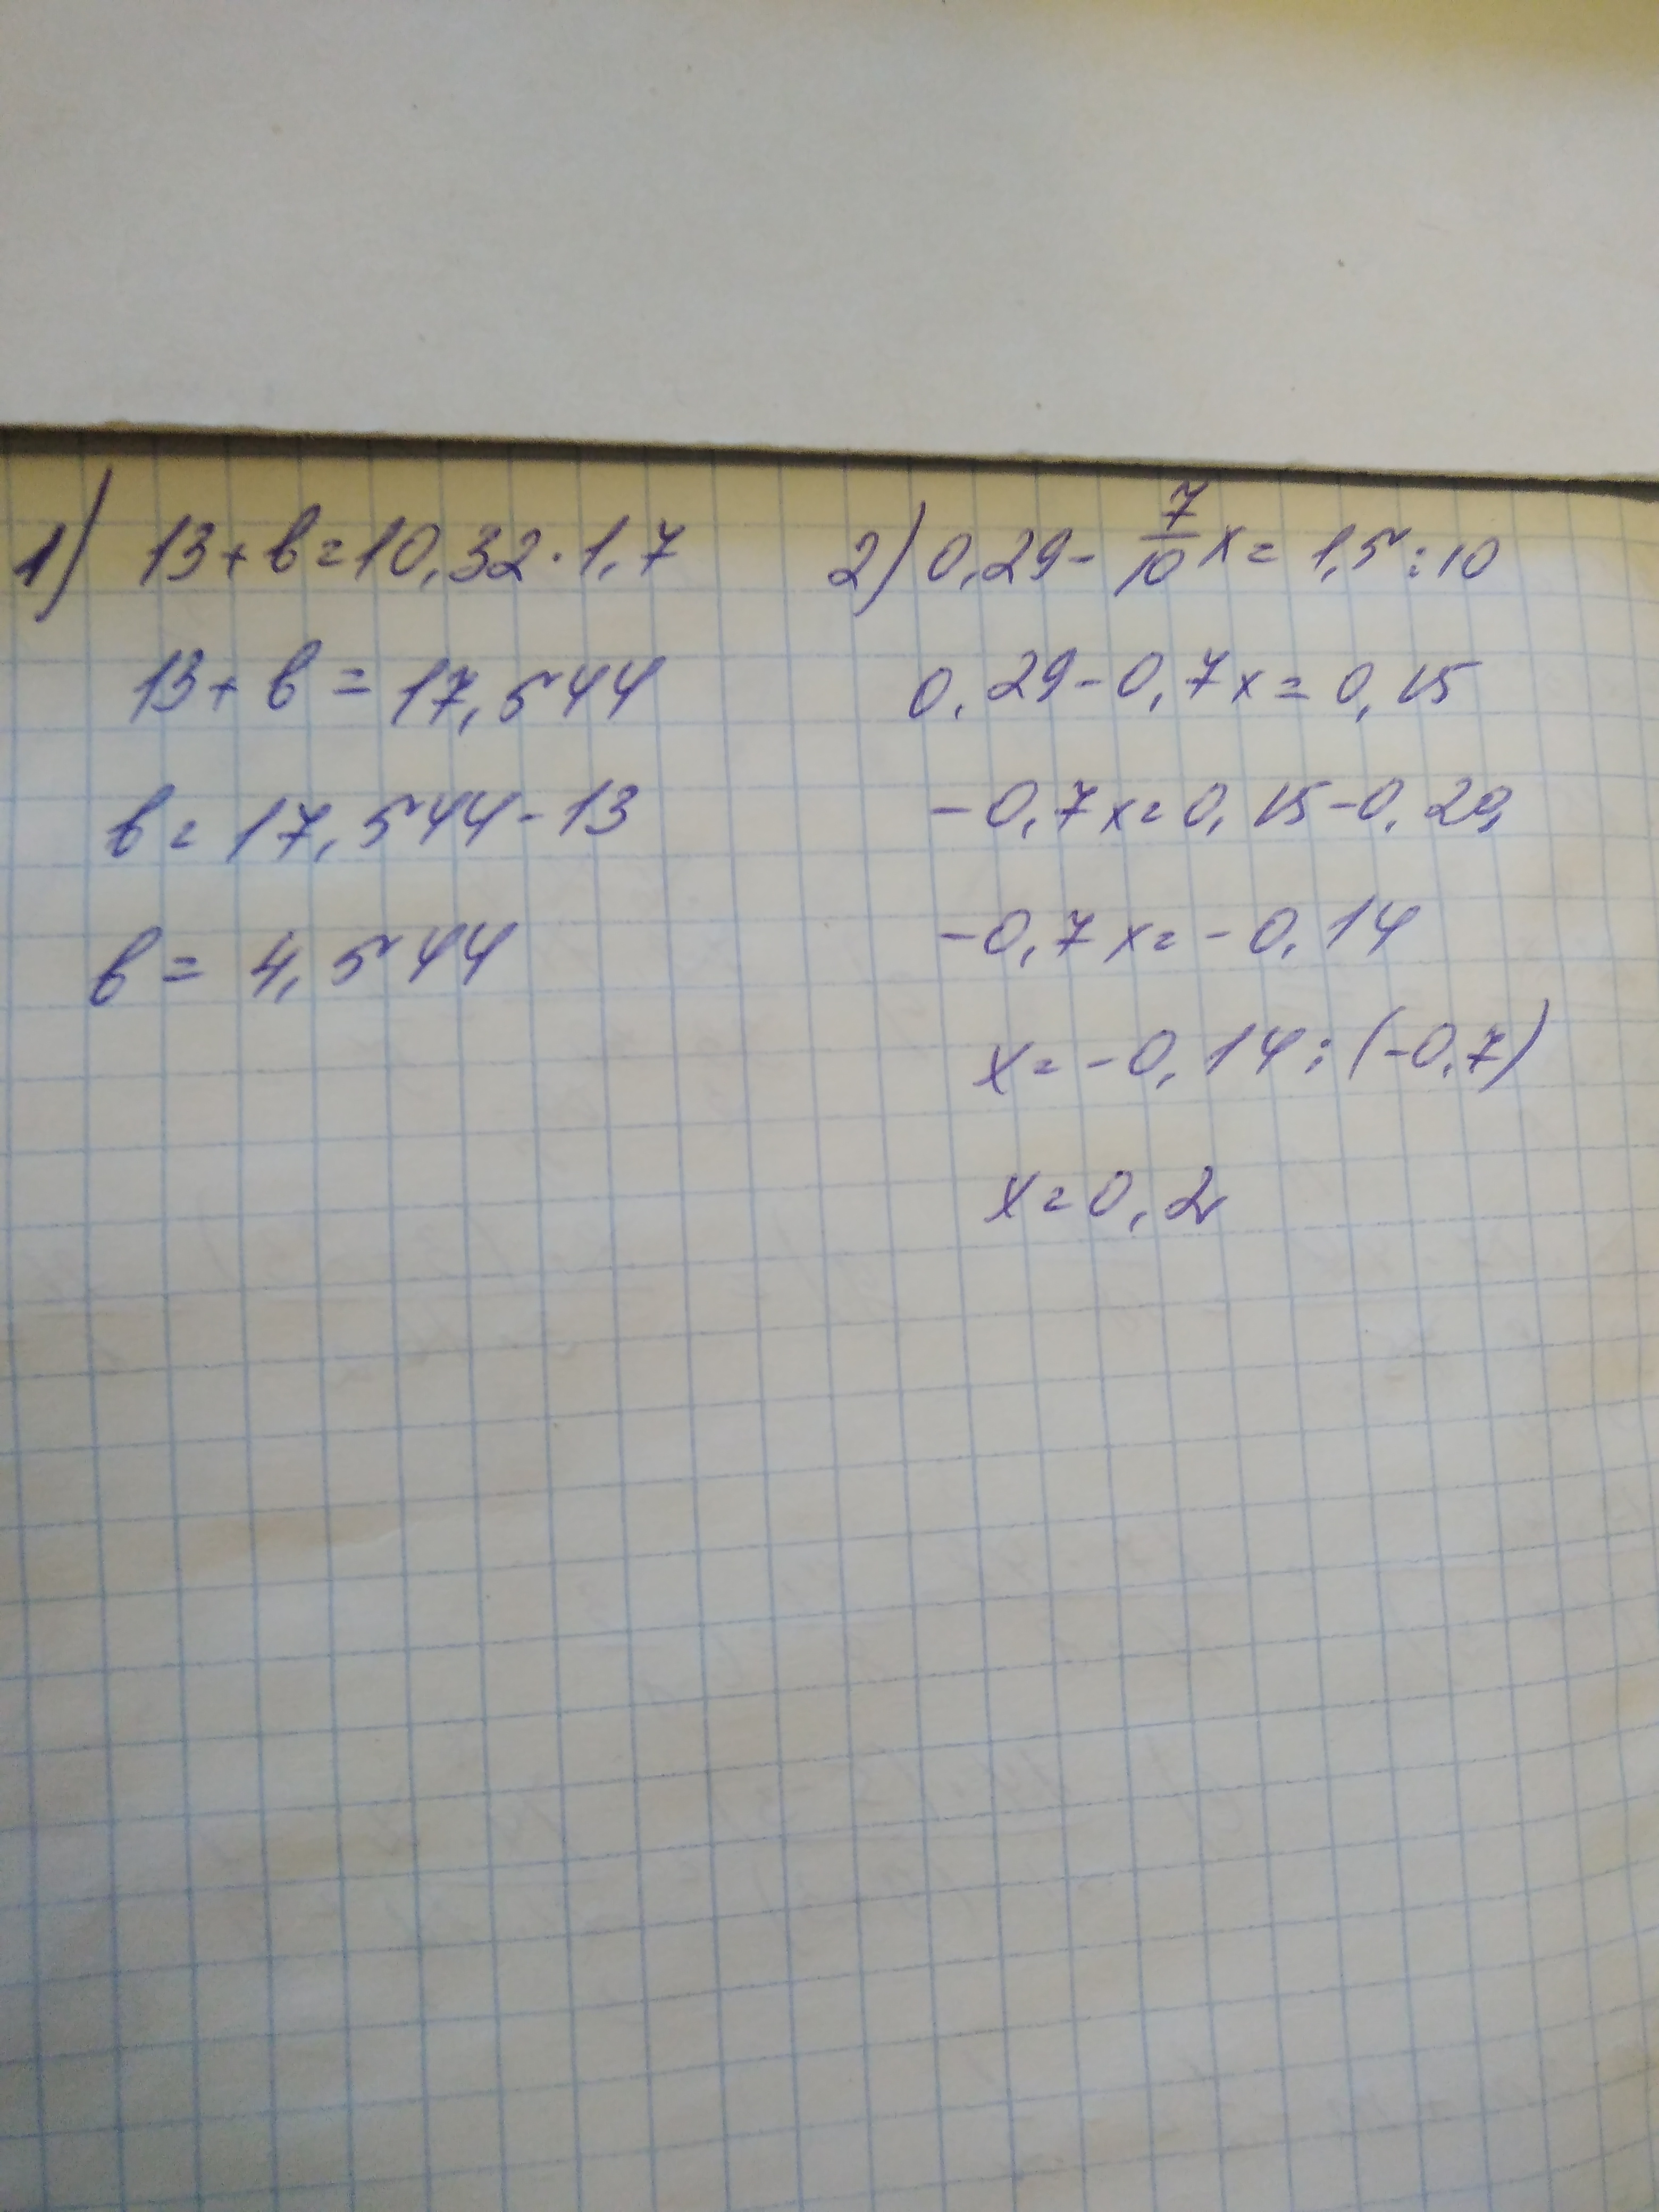 1) 13+в=10,32·1,7
13+в=17,544
в=17,544-13
в=4,544
2) 0,29-7/10x=1,5:10
0,29-0,7x=0,15
-0,7x=0,15-0,29
-0,7x=-0,14
x=-0,14:(-0,7)
x=0,2